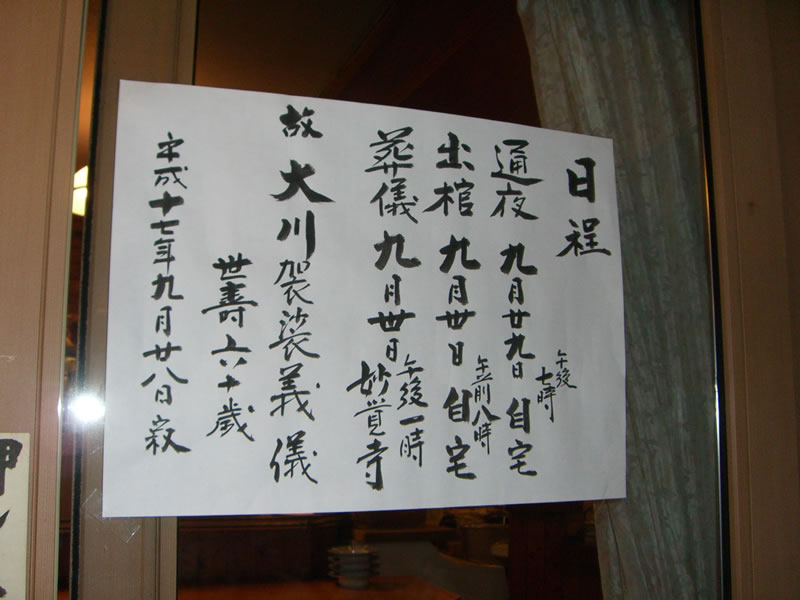 日程
通夜 九月廿九日 午後七時 自宅
出棺 九月卅日 午前八時 自宅
葬儀 九月卅日 午後一時 妙覚寺
故 大川袈裟義儀
世壽六十歳
平成十七年九月廿八日寂